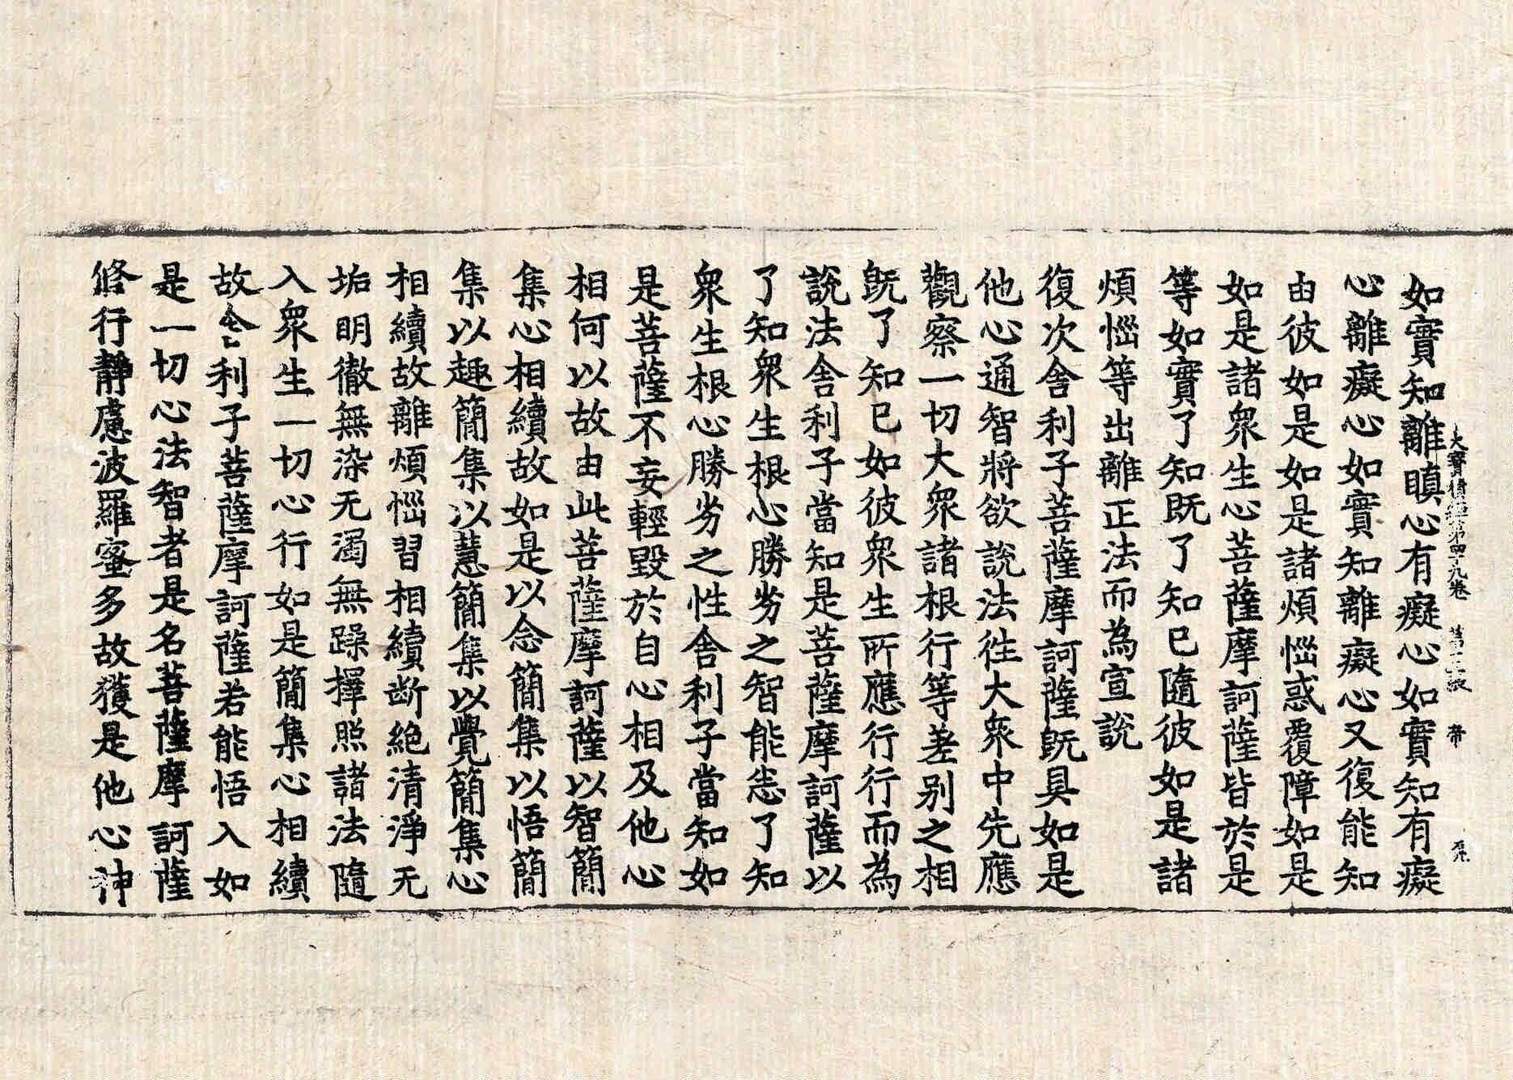 大寶積經第四十九卷 第十二板 帶 
如實知離瞋心有癡心如實知有癡
心離癡心如實知離癡心又復能知
由彼如是如是諸煩惱惑覆障如是
如是諸衆生心菩薩摩訶薩皆於是
等如實了知既了知已隨彼如是諸
煩惱等出離正法而為宣說
復次舍利子菩薩摩訶薩既具如是
他心通智將欲說法往大衆中先應
觀察一切大衆諸根行等差別之相
既了知已如彼衆生所應行行而為
說法舍利子當知是菩薩摩訶薩以
了知衆生根心勝劣之智能悉了知
衆生根心勝劣之性舍利子當知如
是菩薩不妄輕毀於自心相及他心
相何以故由此菩薩摩訶薩以智簡
集心相續故如是以念簡集以悟簡
集以趣簡集以慧簡集以覺簡集心
相續故離煩惱習相續断絶清淨无
垢明徹無染无濁無躁擇照諸法隨
入衆生一切心行如是簡集心相續
故舍利子菩薩摩訶薩若能悟入如
是一切心法智者是名菩薩摩訶薩
修行靜慮波羅蜜多故獲是他心神